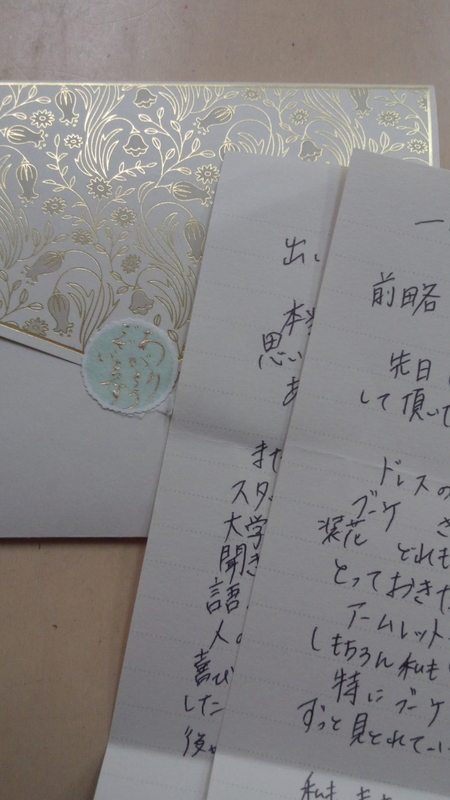 前略
先日
して頂いて
ドレスの
ブーケ さ
装花 どれも
とっておきた
アームレット
しもちろん私も
特にブーケ
ずっと見とれてい
私も
出し
思い
あ
スタ
大学
聞き
人の
喜び
した
後